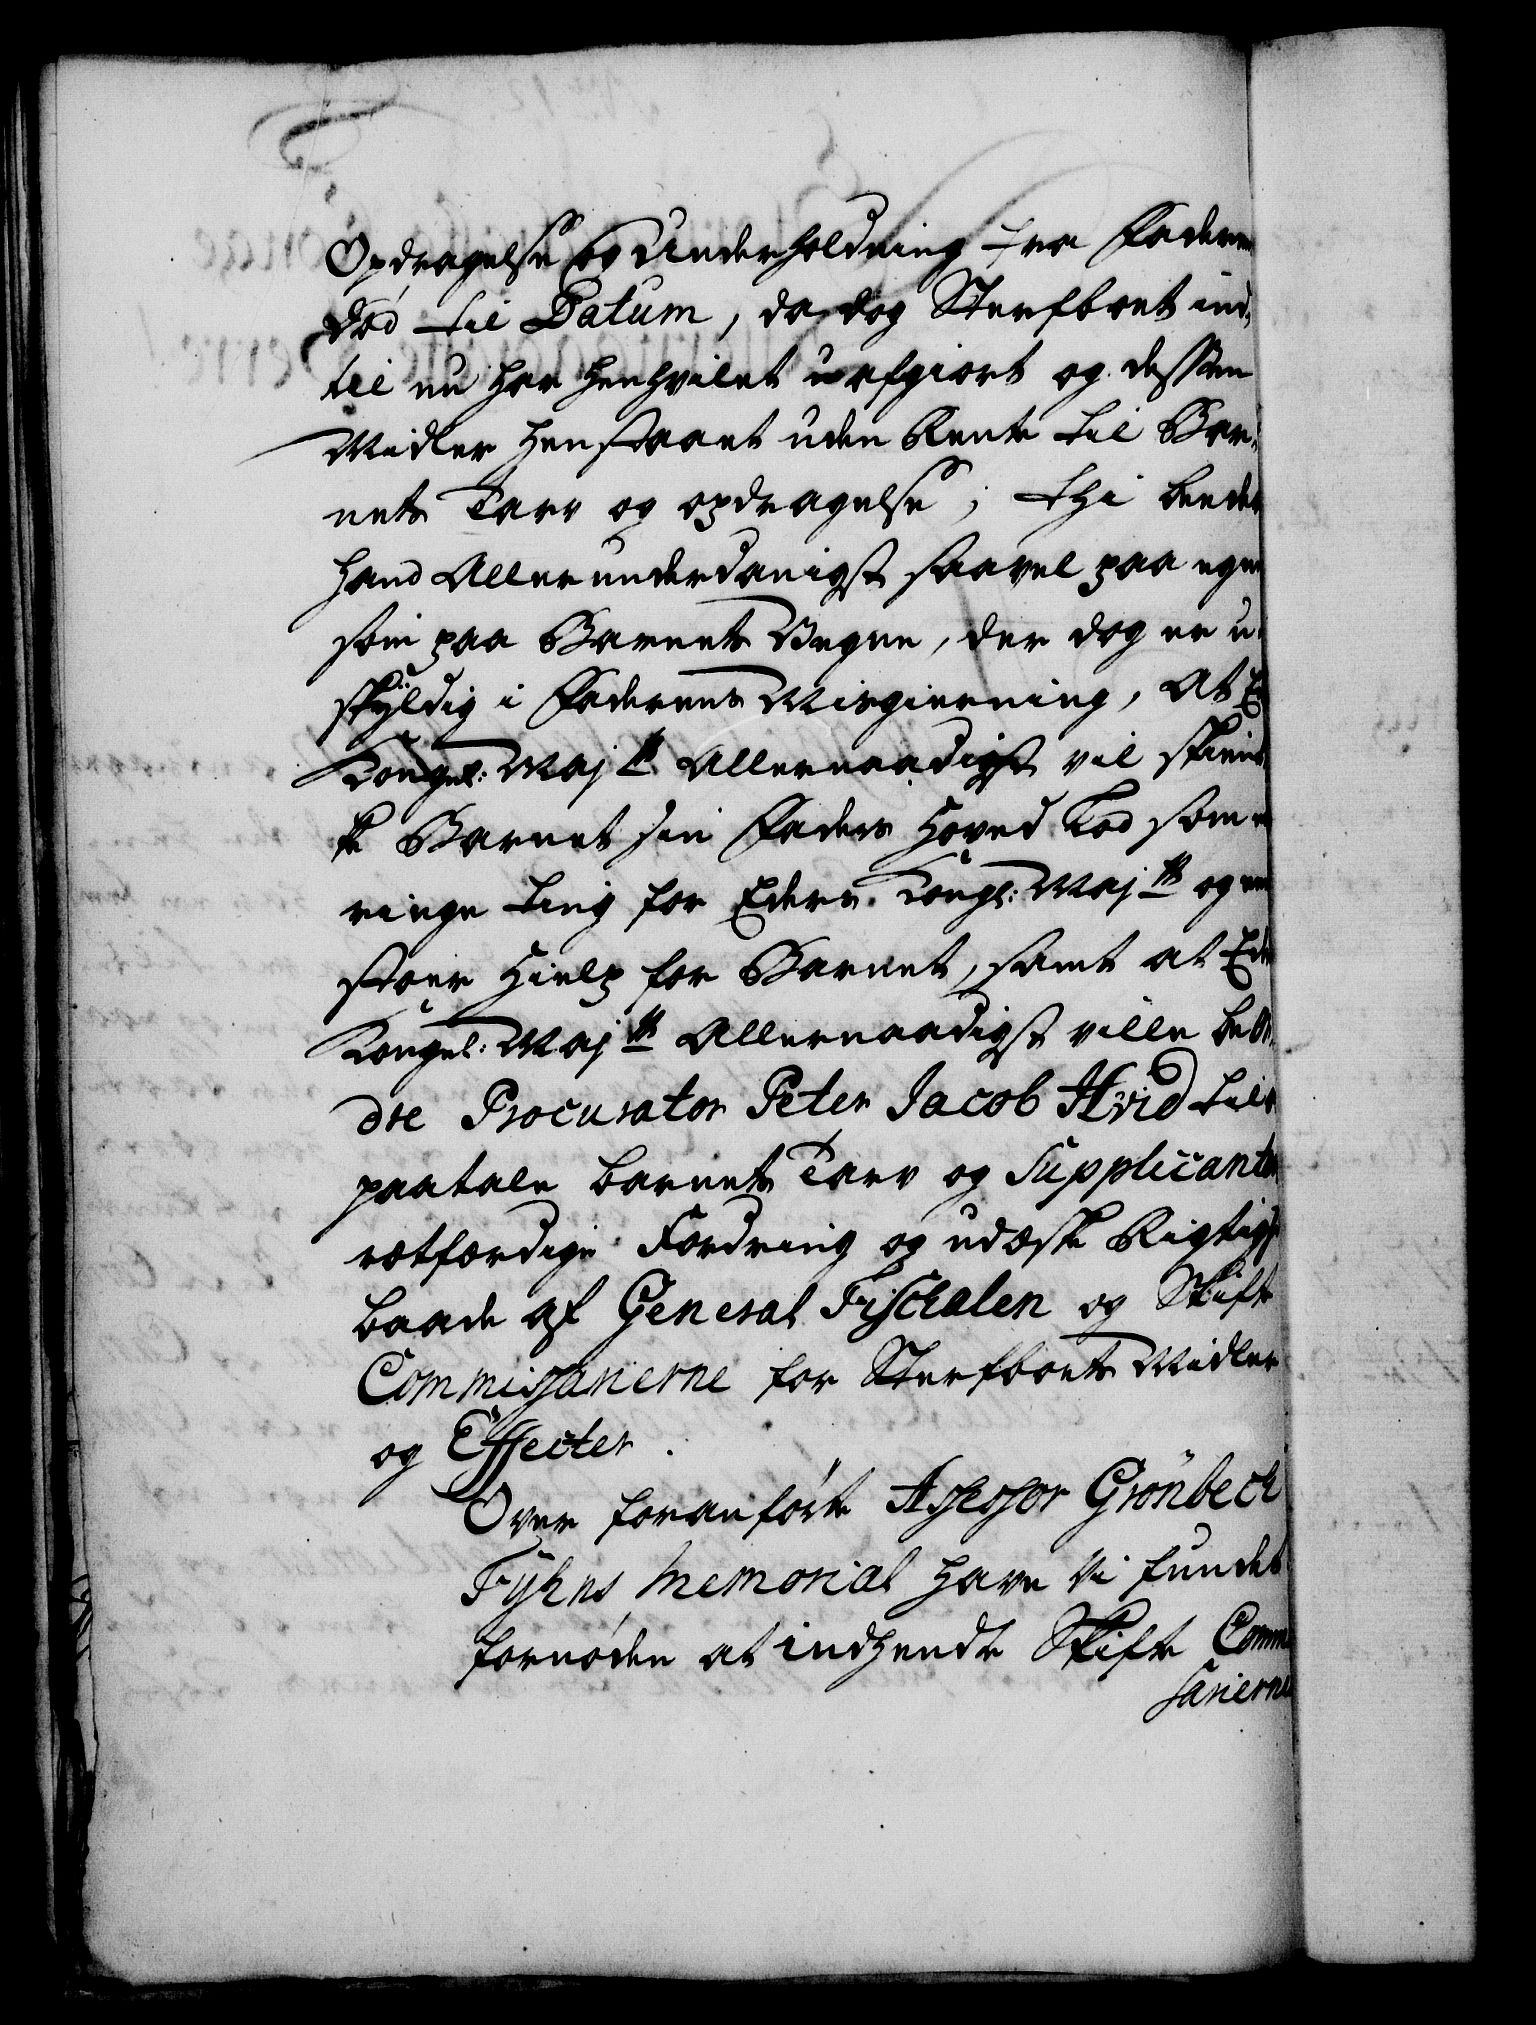 Opdragelse og Underholdning fra Faderens
Død til Datum, da dog Sterfboet ind-
til nu har henhvilet uafgiort og dessen
Midler henstaaet uden Rente til Bar-
nets Tarv og opdragelse; thi beeder
hand Allerunderdanigst saavel paa egne
som paa Barnets Vegne, der dog er u-
skyldig i Faderens Misgierning, At E
Kongel: Maj.ts Allernaadigst vil skien-
ke Barnet sin Faders Hoved Lod som e
ringe ting for Eders Kongl: Maj.ts og en
stoer Hielp for Barnet, samt at Eders
Kongel: Maj.ts Allernaadigst ville beor-
dre Procurator Peter Jacob Hvid til at
paatale barnets Tarv og Supplicanten
retfærdige Fordring og udæske Rigtigh
baade af General Fischalen og Skifte
Commissarierne for Sterfboets Midler
og Effecter.
Over foranførte Assessor Grönbech
Fyhns Memorial have Vi fundet
fornøden at indhendte Skifte Commi
sarierne